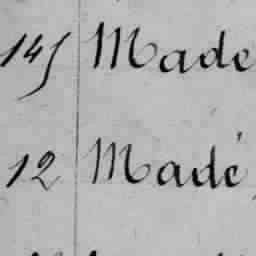 145 Made
12 Madé